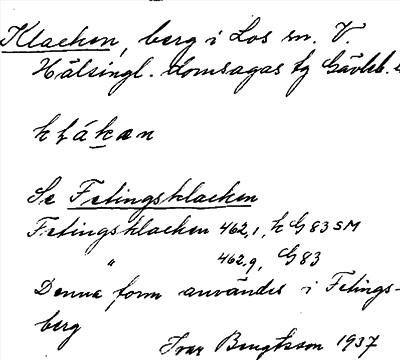 Klacken, berg i Los sn. V.
Hälsingl. domsagas tg Gävleb. l
kḷákan
Se Fetingsklacken
Fetingsklacken 462,1, k G 83 SM
" 462,9, G 83
Denna form användes i Fetings-
berg
Ivar Bengtsson 1937